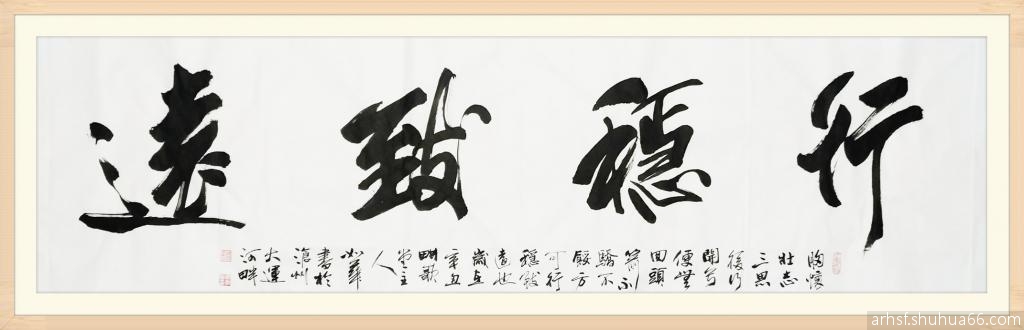 行穩致遠
胸懷
壯志
三思
後行
開弓
便無
回頭
箭不
驕不
餒方
可行
穩致
遠也
歲在
辛丑
畊歌
堂主
人
書於
滄州
大運
河畔
arhsf.shuhua66.com